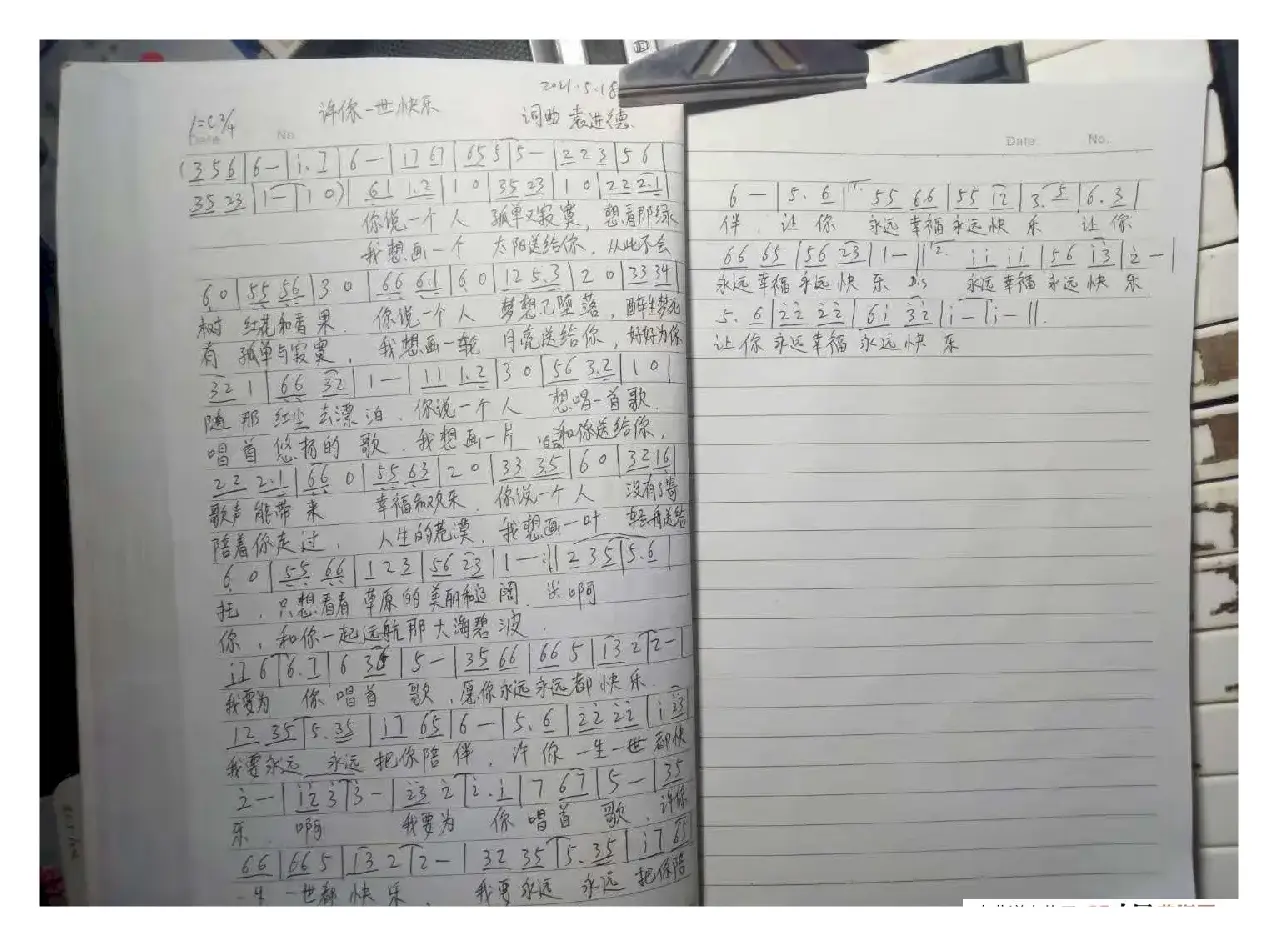 2021.5.18
许你一世快乐
1=C 2/4
词曲 袁进德
Date No.
(3 5 6 | 6 — | i. 7 | 6 — | i7 67 | 65 5 | 5 — | 2 2 3 | 5 6 |
35 23 | 1 — | 1 0) | 61 1.2 | 1 0 | 35 23 | 1 0 | 22 2.1 |
你说一个人 孤单又寂寞, 想看那绿
我想画一个 太阳送给你, 从此不会
6 0 | 55 56 | 3 0 | 66 61 | 6 0 | 12 5.3 | 2 0 | 33 34 |
树 红花和青果. 你说一个人 梦想已堕落, 醉生梦死
有 孤单与寂寞, 我想画一轮 月亮送给你, 好好为你
32 1 | 66 32 | 1 — | 11 1.2 | 3 0 | 56 3.2 | 1 0 |
随那红尘去漂泊. 你说一个人 想唱一首歌.
唱首悠扬的歌. 我想画一片 和你送给你,
22 2.1 | 66 0 | 55 63 | 2 0 | 33 35 | 6 0 | 32 16 |
歌声能带来 幸福和欢乐. 你说一个人 没有
陪着你走过, 人生的荒漠, 我想画一叶 送给
6 0 | 55 66 | 1 2 3 | 56 23 | 1 — :|| 2 35 | 5. 6 |
托, 只想看看草原的美丽和辽阔. 啊
你, 和你一起远航那大海碧波.
i7 6 | 6. 7 | 6 36 | 5 — | 35 66 | 66 5 | i3 2 | 2 — |
我要为 你唱首 歌, 愿你永远永远都快乐.
12 35 | 5. 35 | i7 65 | 6 — | 5. 6 | 22 22 | i 23 |
我要永远 永远把你陪伴, 许你一生一世都快
2 — | i2 3 | 3 — | 23 2 | 2. i | 7 67 | 5 — | 35
乐. 啊 我要为 你唱首 歌, 许你
66 | 66 5 | i3 2 | 2 — | 32 35 | 5. 35 | i7 65
一生一世都快乐, 我要永远 永远把你陪
Date No.
6 — | 5. 6 | 1. 55 66 | 55 i2 | 3. 5 | 6. 3 |
伴. 让你 永远幸福永远快乐 让你
66 65 | 56 23 | 1 — :|| 2. ii ii | 56 i3 | 2 — |
永远幸福永远快乐 D.S 永远幸福永远快乐
5. 6 | 22 22 | 6i 32 | i — | i — ||.
让你永远幸福永远快乐